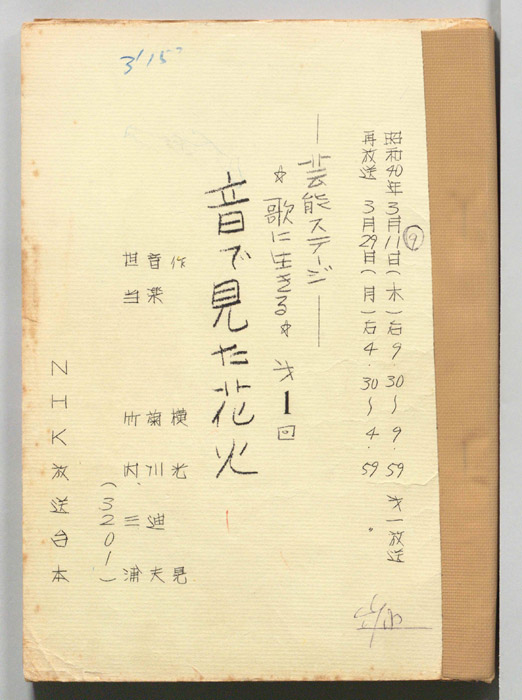 3'15"
昭和40年3月11日(木)后9.30〜9.59 才一放送
⑨
再放送 3月29日(月)后4.30〜4.59
―芸能ステージ―
☆歌に生きる☆ 才1回
音で見た花火
作 横光晃
音楽 菊川迪夫
担当 竹内、三浦
(3201)
NHK放送台本